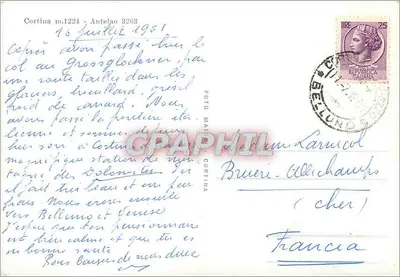 Cortina m.1224 - Antelao 3263
16 juillet 1951
Après avoir passé hier le
col du Grossglockner, par
une route taillée dans les
glaciers, brouillard, grésil
froid de canard. Nous
avons passé la frontière ita
lienne et sommes depuis
hier soir à Cortina
magnifique station de mon
tagne des Dolomites
il fait très beau et un peu
frais. Nous irons ensuite
vers Belluno et Venise
J'espère que ton pensionnaire
est bien calme et que tu es
en bonne santé
Bons baisers de nous deux
FOTO CORTINA
25
BELLUNO
GRAPHIL
Bruère-Allichamps
(Cher)
Francia